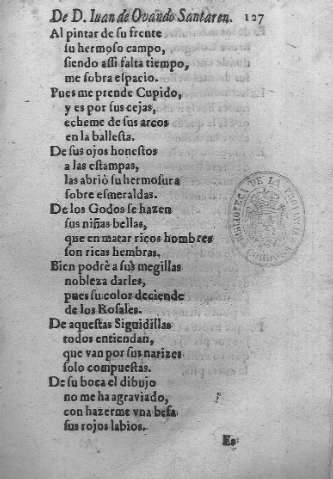 De D. Iuan de Ouando Santaren. 127
Al pintar de su frente
su hermoso campo,
siendo assi falta tiempo,
me sobra espacio.
Pues me prende Cupido,
y es por sus cejas,
echeme de sus arcos
en la ballesta.
De sus ojos honestos
a las estampas,
las abriò su hermosura
sobre esmeraldas.
De los Godos se hazen
sus niñas bellas,
que en matar ricos hombres
son ricas hembras.
Bien podrè a sus megillas
nobleza darles,
pues su color deciende
de los Rosales.
De aquestas Siguidillas
todos entiendan,
que van por sus narizes
solo compuestas.
De su boca el dibujo
no me ha agraviado,
con hazerme vna besa
sus rojos labios.
Es
BIBLIOTECA DE LA